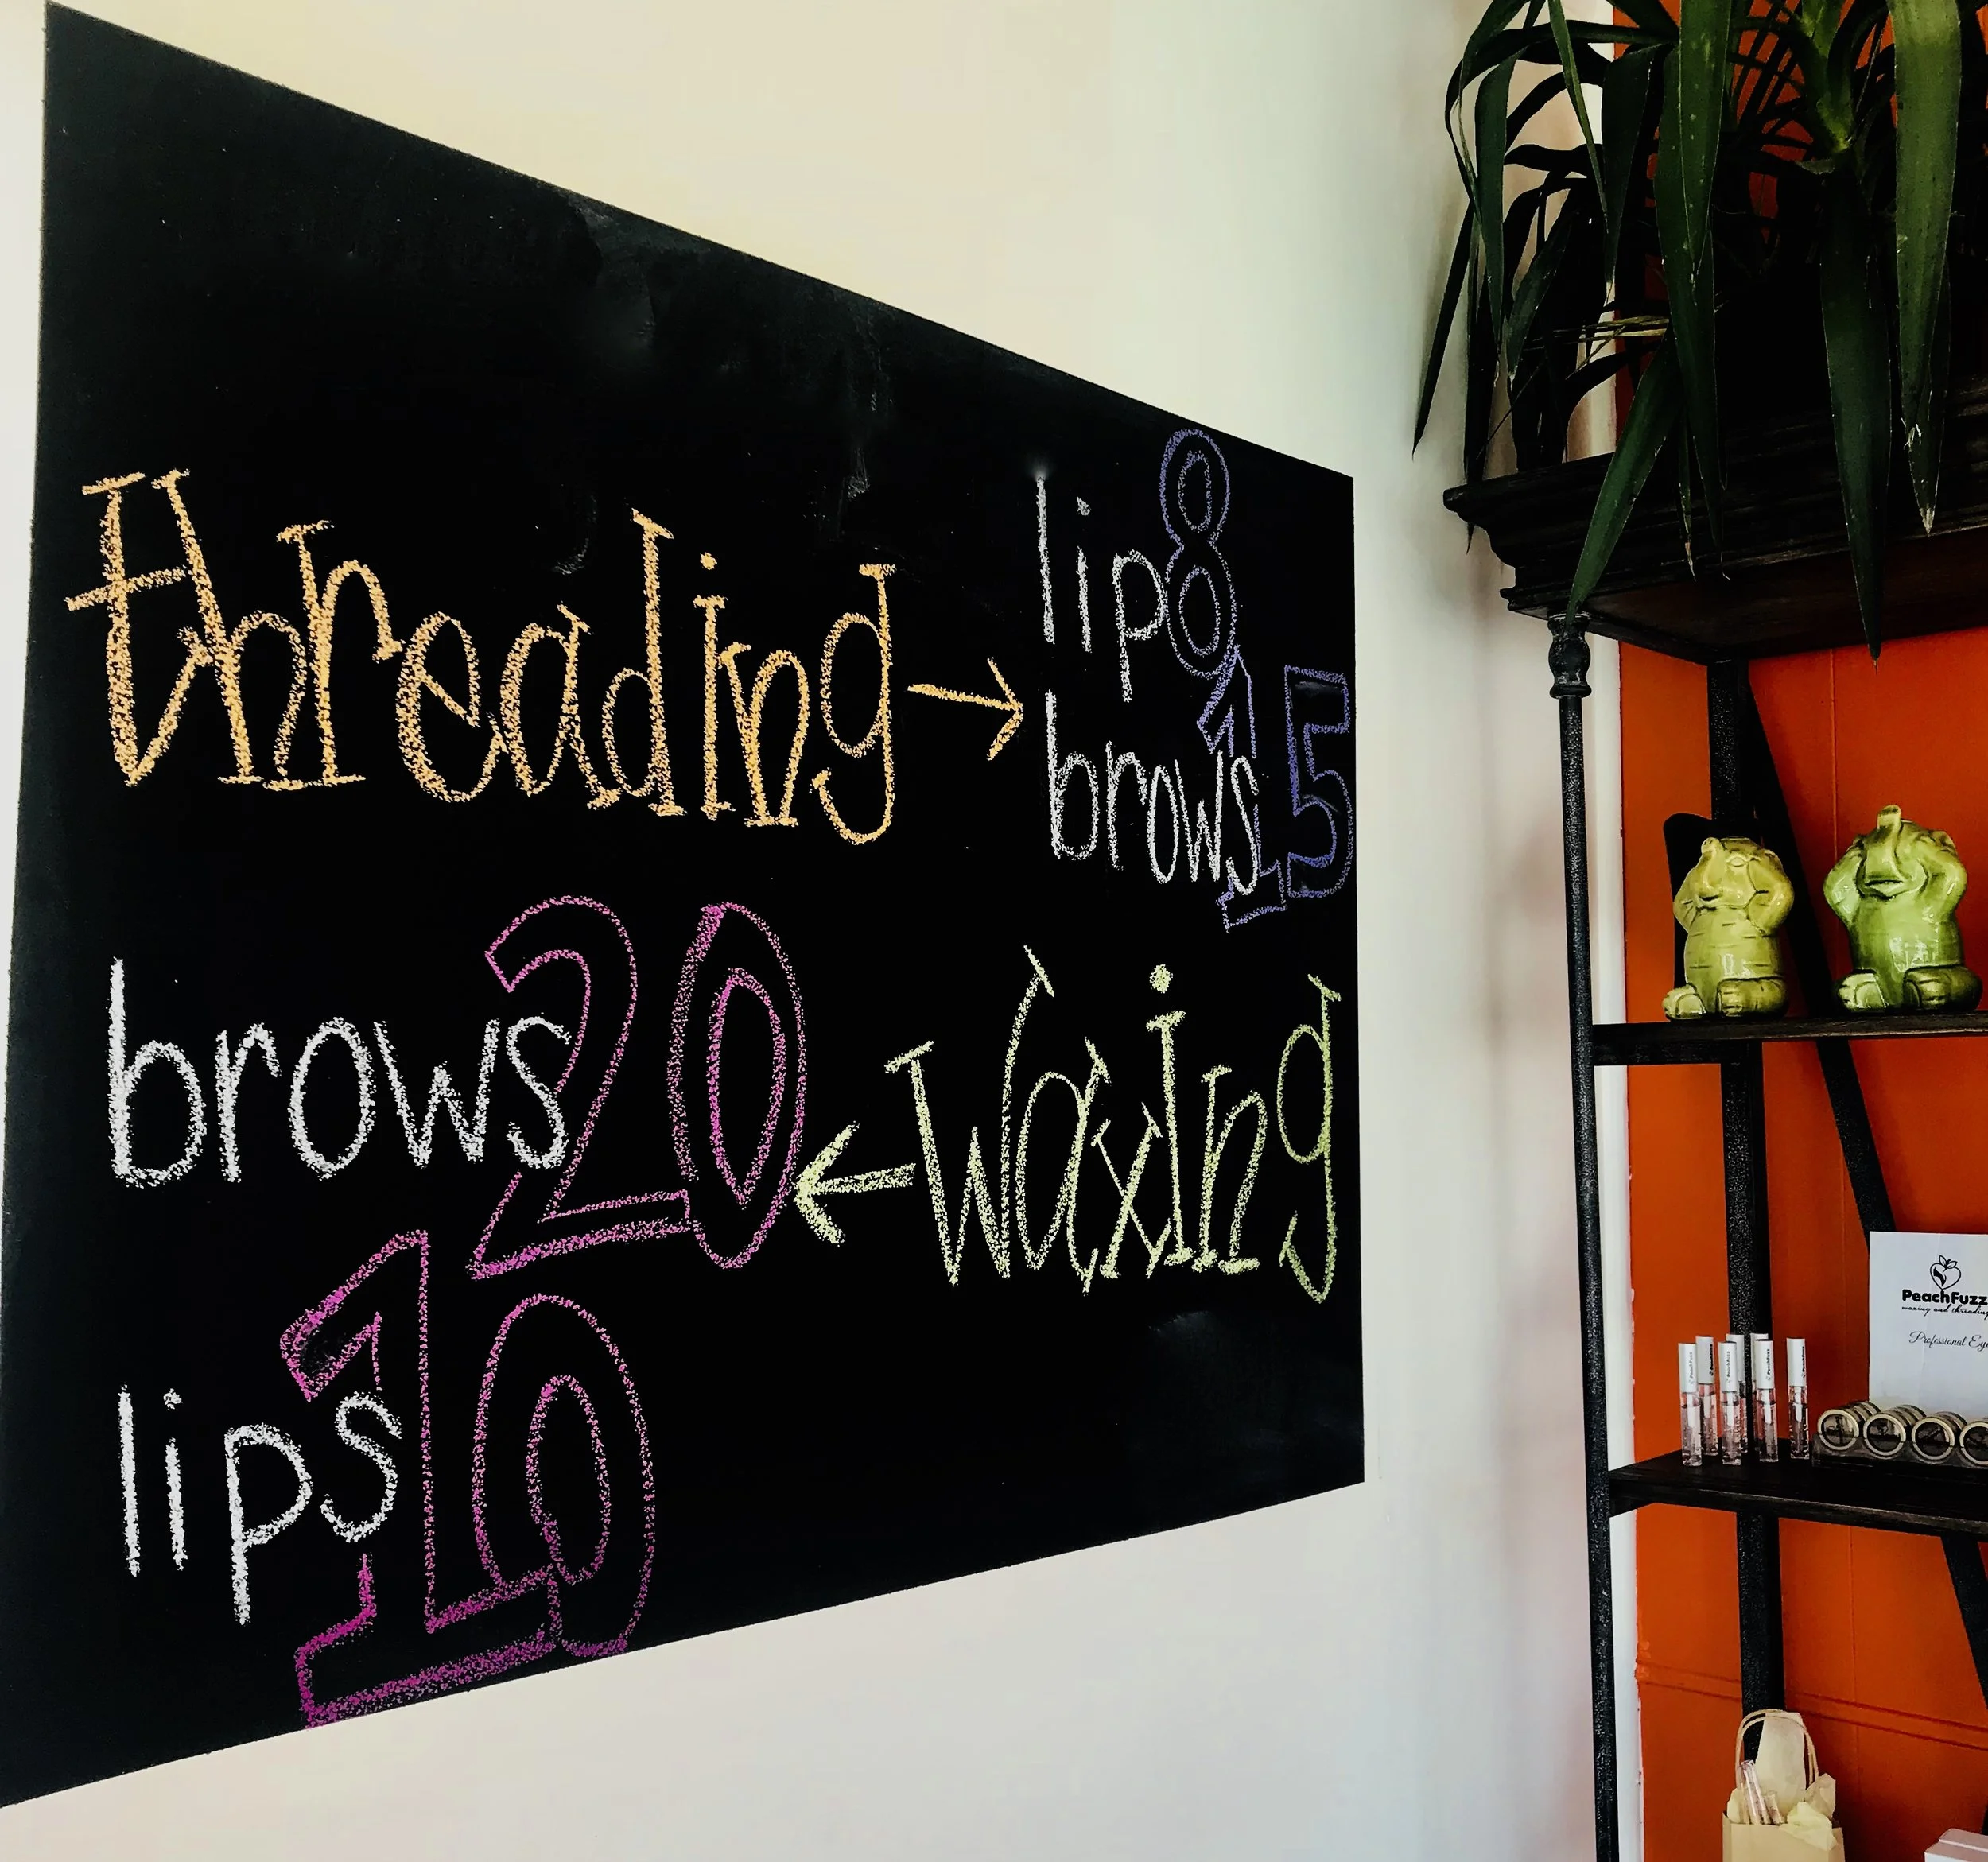 threading → lip 8
brows 15
brows 20 ← Waxing
lips 10
PeachFuzz
waxing and threading
Professional